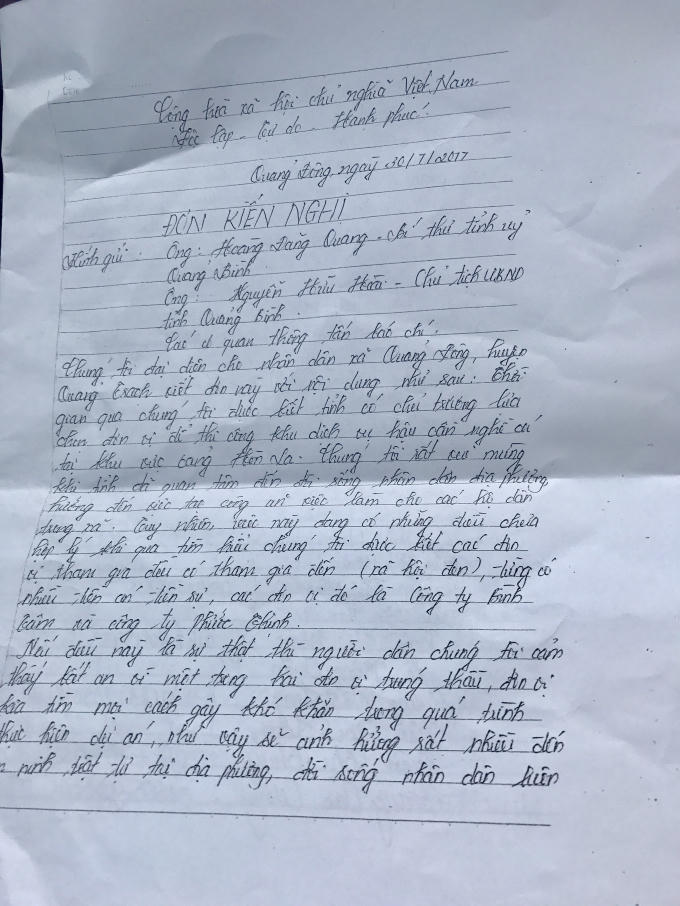 Cộng hoà xã hội chủ nghĩa Việt Nam
Độc lập - Tự do - Hạnh phúc!
Quảng Đông ngày 30/7/2017
ĐƠN KIẾN NGHỊ
Kính gửi: Ông: Hoàng Đăng Quang - Bí thư tỉnh uỷ
Quảng Bình
Ông: Nguyễn Hữu Hoài - Chủ tịch UBND
tỉnh Quảng Bình.
Các cơ quan thông tấn báo chí.
Chúng tôi đại diện cho nhân dân xã Quảng Đông, huyện
Quảng Trạch viết đơn này với nội dung như sau: Thời
gian qua chúng tôi được biết tỉnh có chủ trương lựa
chọn đơn vị để thi công khu dịch vụ hậu cần nghề cá
tại khu vực cảng Hòn La. Chúng tôi rất vui mừng
khi tỉnh đã quan tâm đến đời sống nhân dân địa phương,
hướng đến việc tạo công ăn việc làm cho các hộ dân
trong xã. Tuy nhiên, việc này đang có những điều chưa
hợp lý khi qua tìm hiểu chúng tôi được biết các đơn
vị tham gia đều có tham gia đến (xã hội đen), từng có
nhiều tiền án tiền sự, các đơn vị đó là Công ty Bình
và công ty Phước Thịnh.
Nếu điều này là sự thật thì người dân chúng tôi cảm
thấy bất an vì một trong hai đơn vị trúng thầu, đơn vị
kia tìm mọi cách gây khó khăn trong quá trình
thực hiện dự án, như vậy sẽ ảnh hưởng rất nhiều đến
ninh trật tự tại địa phương, đời sống nhân dân